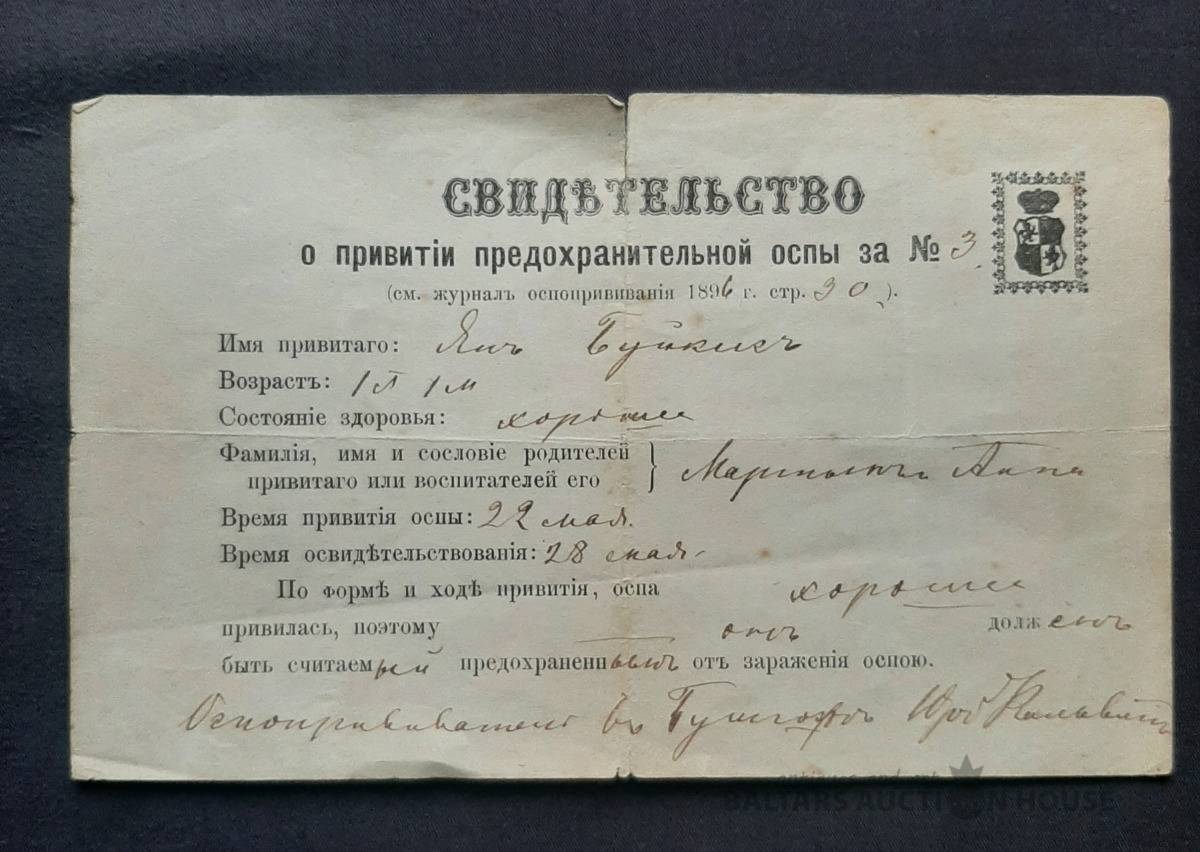 СВИДѢТЕЛЬСТВО
о привитіи предохранительной оспы за № 3.
(см. журналъ оспопрививанія 1896 г. стр. 30).
Имя привитаго: Янъ
Возрастъ: 1 л 1 м
Состояніе здоровья: хорошее
Фамилія, имя и сословіе родителей
привитаго или воспитателей его } Анна
Время привитія оспы: 22 мая.
Время освидѣтельствованія: 28 мая
По формѣ и ходѣ привитія, оспа хорошо
привилась, поэтому онъ долженъ
быть считаемый предохраненнымъ отъ зараженія оспою.
Оспопрививатель въ
antiques and art
BALTARS AUCTION HOUSE